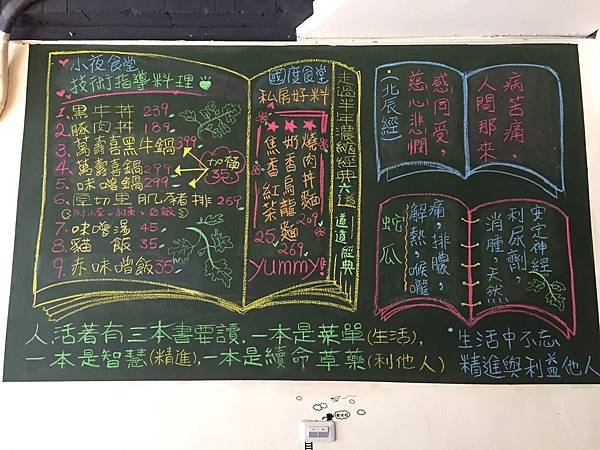 小夜食堂
技術指導料理
1.黑牛丼239
2.豚肉丼189
3.萬壽喜黑牛鍋399
4.萬壽喜鍋299
5.味噌鍋299
加麵
35
6.厚切里肌豬排269
7.味噌湯45
8.貓飯35
9.赤味噌飯35
國度食堂
私房好料
燒肉丼麵
209
奶香烏龍麵
269
焦香紅茶
25
yummy!
走過半年濃縮經典六道
道道經典
病苦痛，
人間那來
感同受，
慈心悲憫
(北辰經)
安定神經
利尿劑，
消腫，天然
痛，排膿，
解熱，喉嚨
蛇瓜
人活著有三本書要讀，一本是菜單(生活)，
一本是智慧(精進)，一本是續命草藥(利他人)
生活中不忘
精進與利益他人